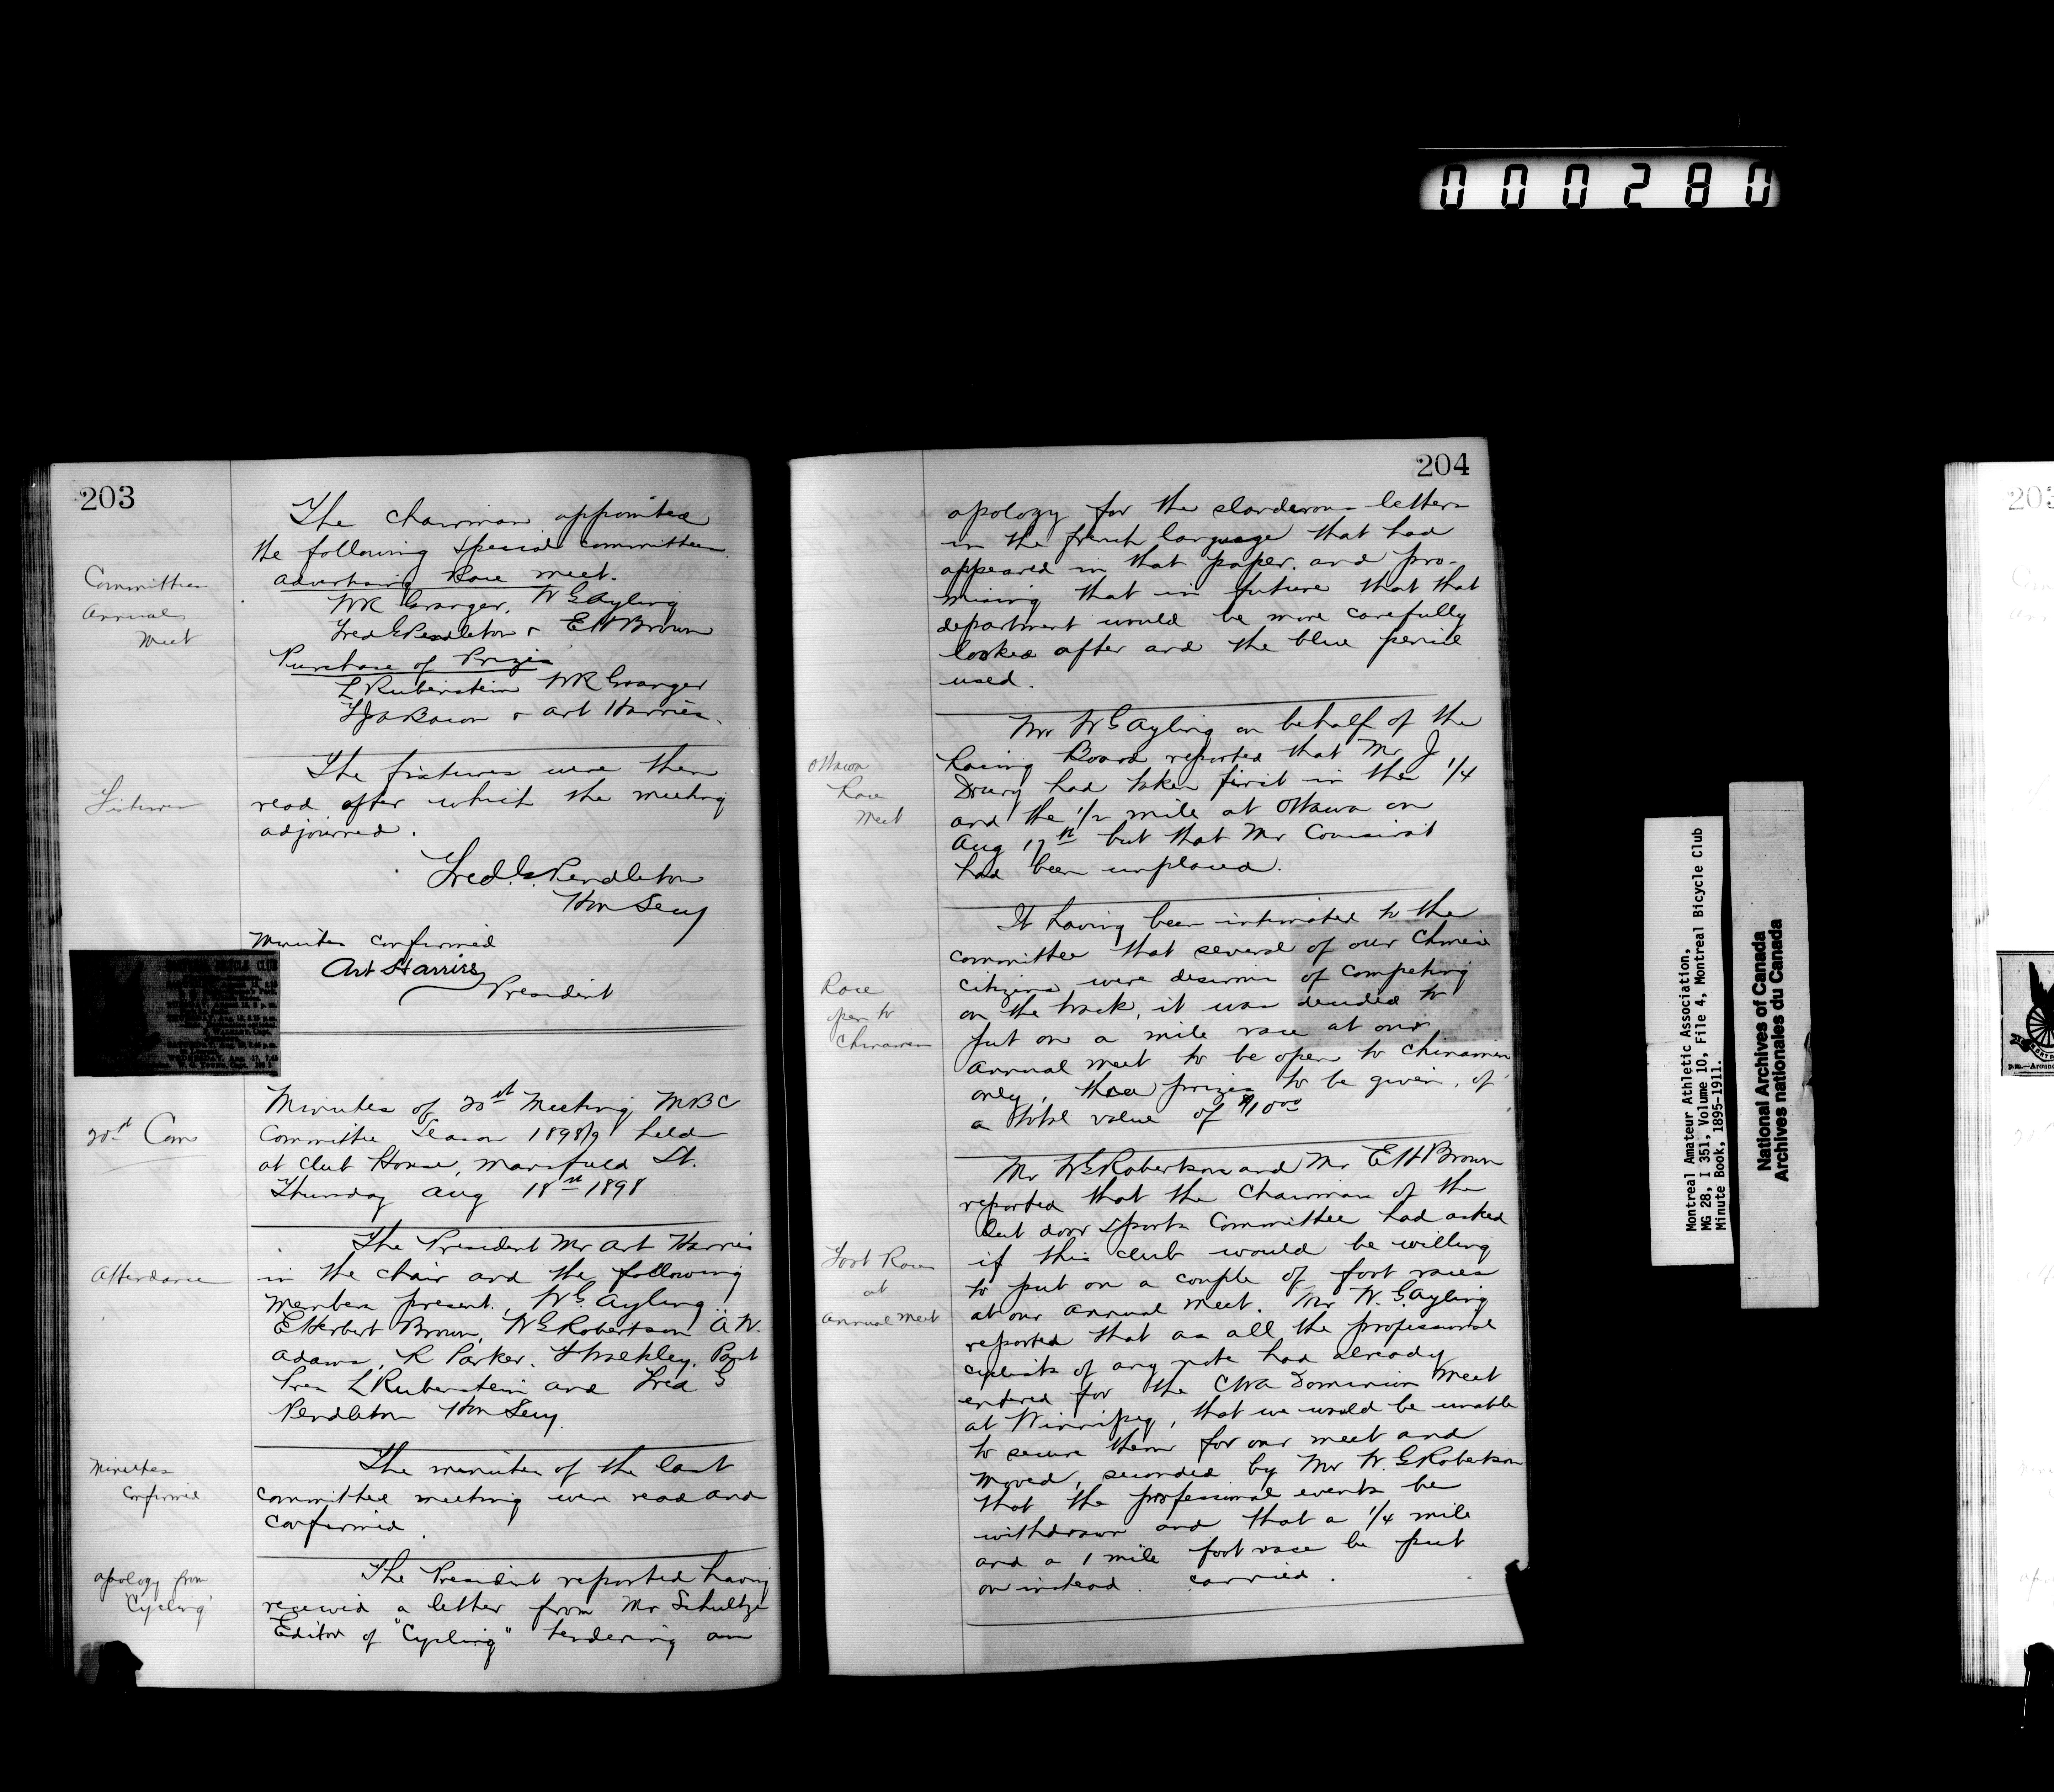 000280
203
The chairman appointed
the following special committees.
Committees
Annual
Meet
Advertising Race meet.
WR Granger, W G Ayling
Fred G Pendleton & E H Brown
Purchase of Prizes
L Rubenstein WR Granger
& Art Harries.
Fixtures
The fixtures were then
read after which the meeting
adjourned.
Fred. G. Pendleton
Hon Secy
Minutes confirmed
Art Harries
President
20st Com
Minutes of 20st Meeting MBC
Committee Season 1898/9 held
at Club House, Mansfield St.
Thursday Aug 18st 1898
Attendance
The President Mr Art Harries
in the chair and the following
members present, W G. Ayling,
E Herbert Brown, W G Robertson A W.
Adams, R Parker, Past
Pres L Rubenstein and Fred G
Pendleton Hon Secy.
Minutes
confirmed
The minutes of the last
committee meeting were read and
confirmed.
apology from
"Cycling"
The President reported having
received a letter from Mr Schultze
Editor of "Cycling" tendering an
204
apology for the slanderous letters
in the french language that had
appeared in that paper, and pro-
mising that in future that that
department would be more carefully
looked after and the blue pencil
used.
Ottawa
Race
Meet
Mr W G Ayling on behalf of the
Racing Board reported that Mr J
Drury had taken first in the 1/4
and the 1/2 mile at Ottawa on
Aug 17st but that Mr
had been unplaced.
Race
open to
Chinamen
It having been intimated to the
committee that several of our Chinese
citizens were desirous of competing
on the track, it was decided to
put on a mile race at our
annual meet to be open to Chinamen
only, three prizes to be given, of
a total value of $10.00
Foot Races
at
Annual Meet
Mr W G Robertson and Mr E H Brown
reported that the Chairman of the
Out door sports Committee had asked
if this club would be willing
to put on a couple of foot races
at our annual meet. Mr W. G. Ayling
reported that as all the professional
cyclists of any note had already
entered for the CWA Dominion Meet
at Winnipeg, that we would be unable
to secure them for our meet and
moved, seconded by Mr W. G Robertson
that the professional events be
withdrawn and that a 1/4 mile
and a 1 mile foot race be put
on instead. carried.
Montreal Amateur Athletic Association,
MG 28, I 351, Volume 10, File 4, Montreal Bicycle Club
Minute Book, 1895-1911.
National Archives of Canada
Archives nationales du Canada